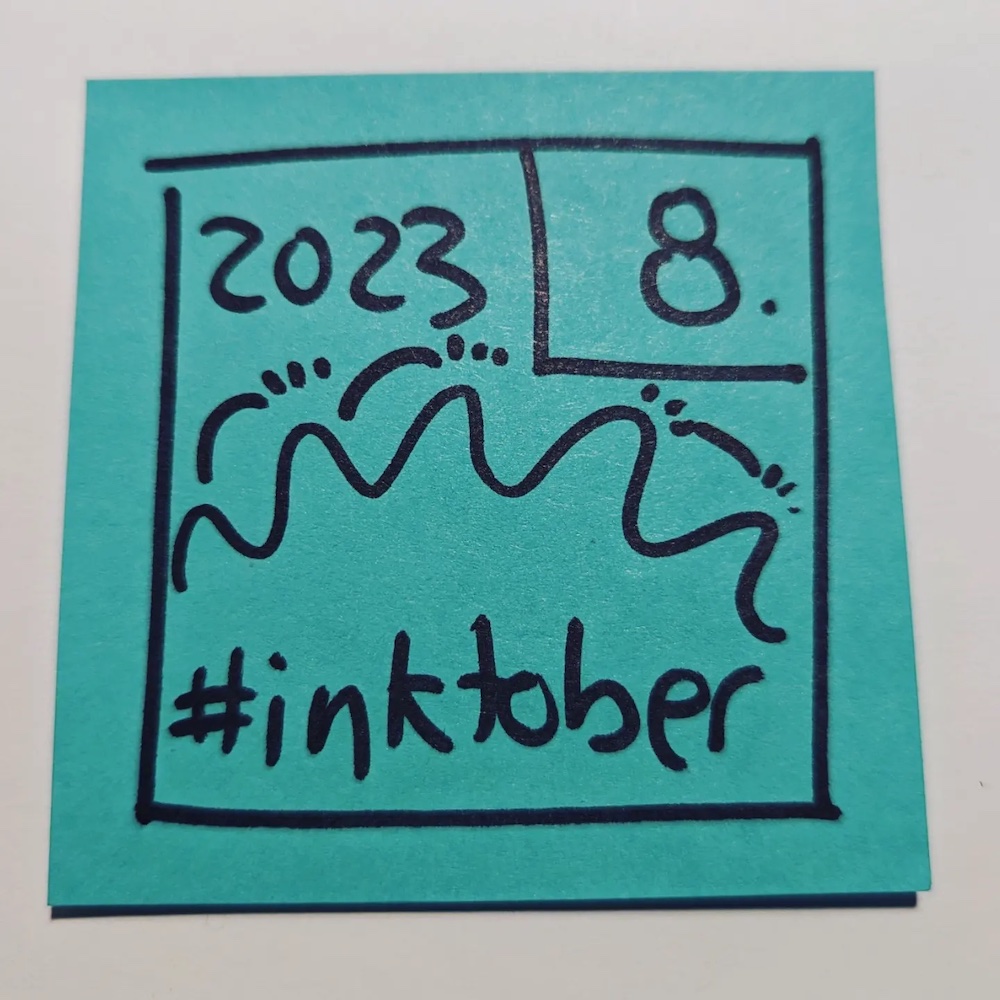 2023
8.
#inktober